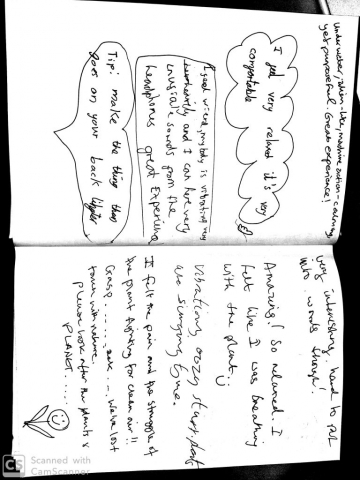 Underwater, alien-like, machine action - calming
yet purposeful. Great experience!
I feel very relaxed it's very
comfortable
I feel wierd, my body is vibrating very
and I can hear very
sounds from the
headphones great Experience
Tip: make the thing that
goes on your back lighter
very interesting, hard to put
into words though!
Amazing! So relaxed. I
felt like I was breathing
with the plant
Vibrations, oozy
like singing
I felt the pain and the struggle of
the plant fighting for clean air!!
Gasp.... We've lost
touch with nature.
please look after the plants &
PLANET.....
CS Scanned with
CamScanner